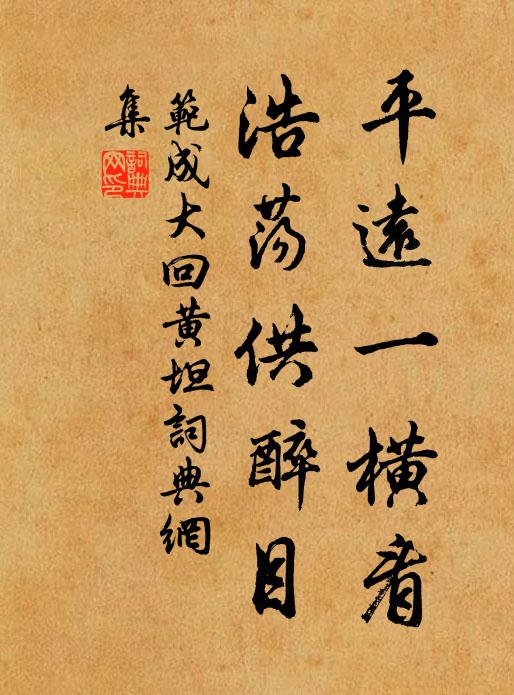 平遠一橫看
浩蕩供醉目
範成大回黃坦詞典網
集
詞典
网印